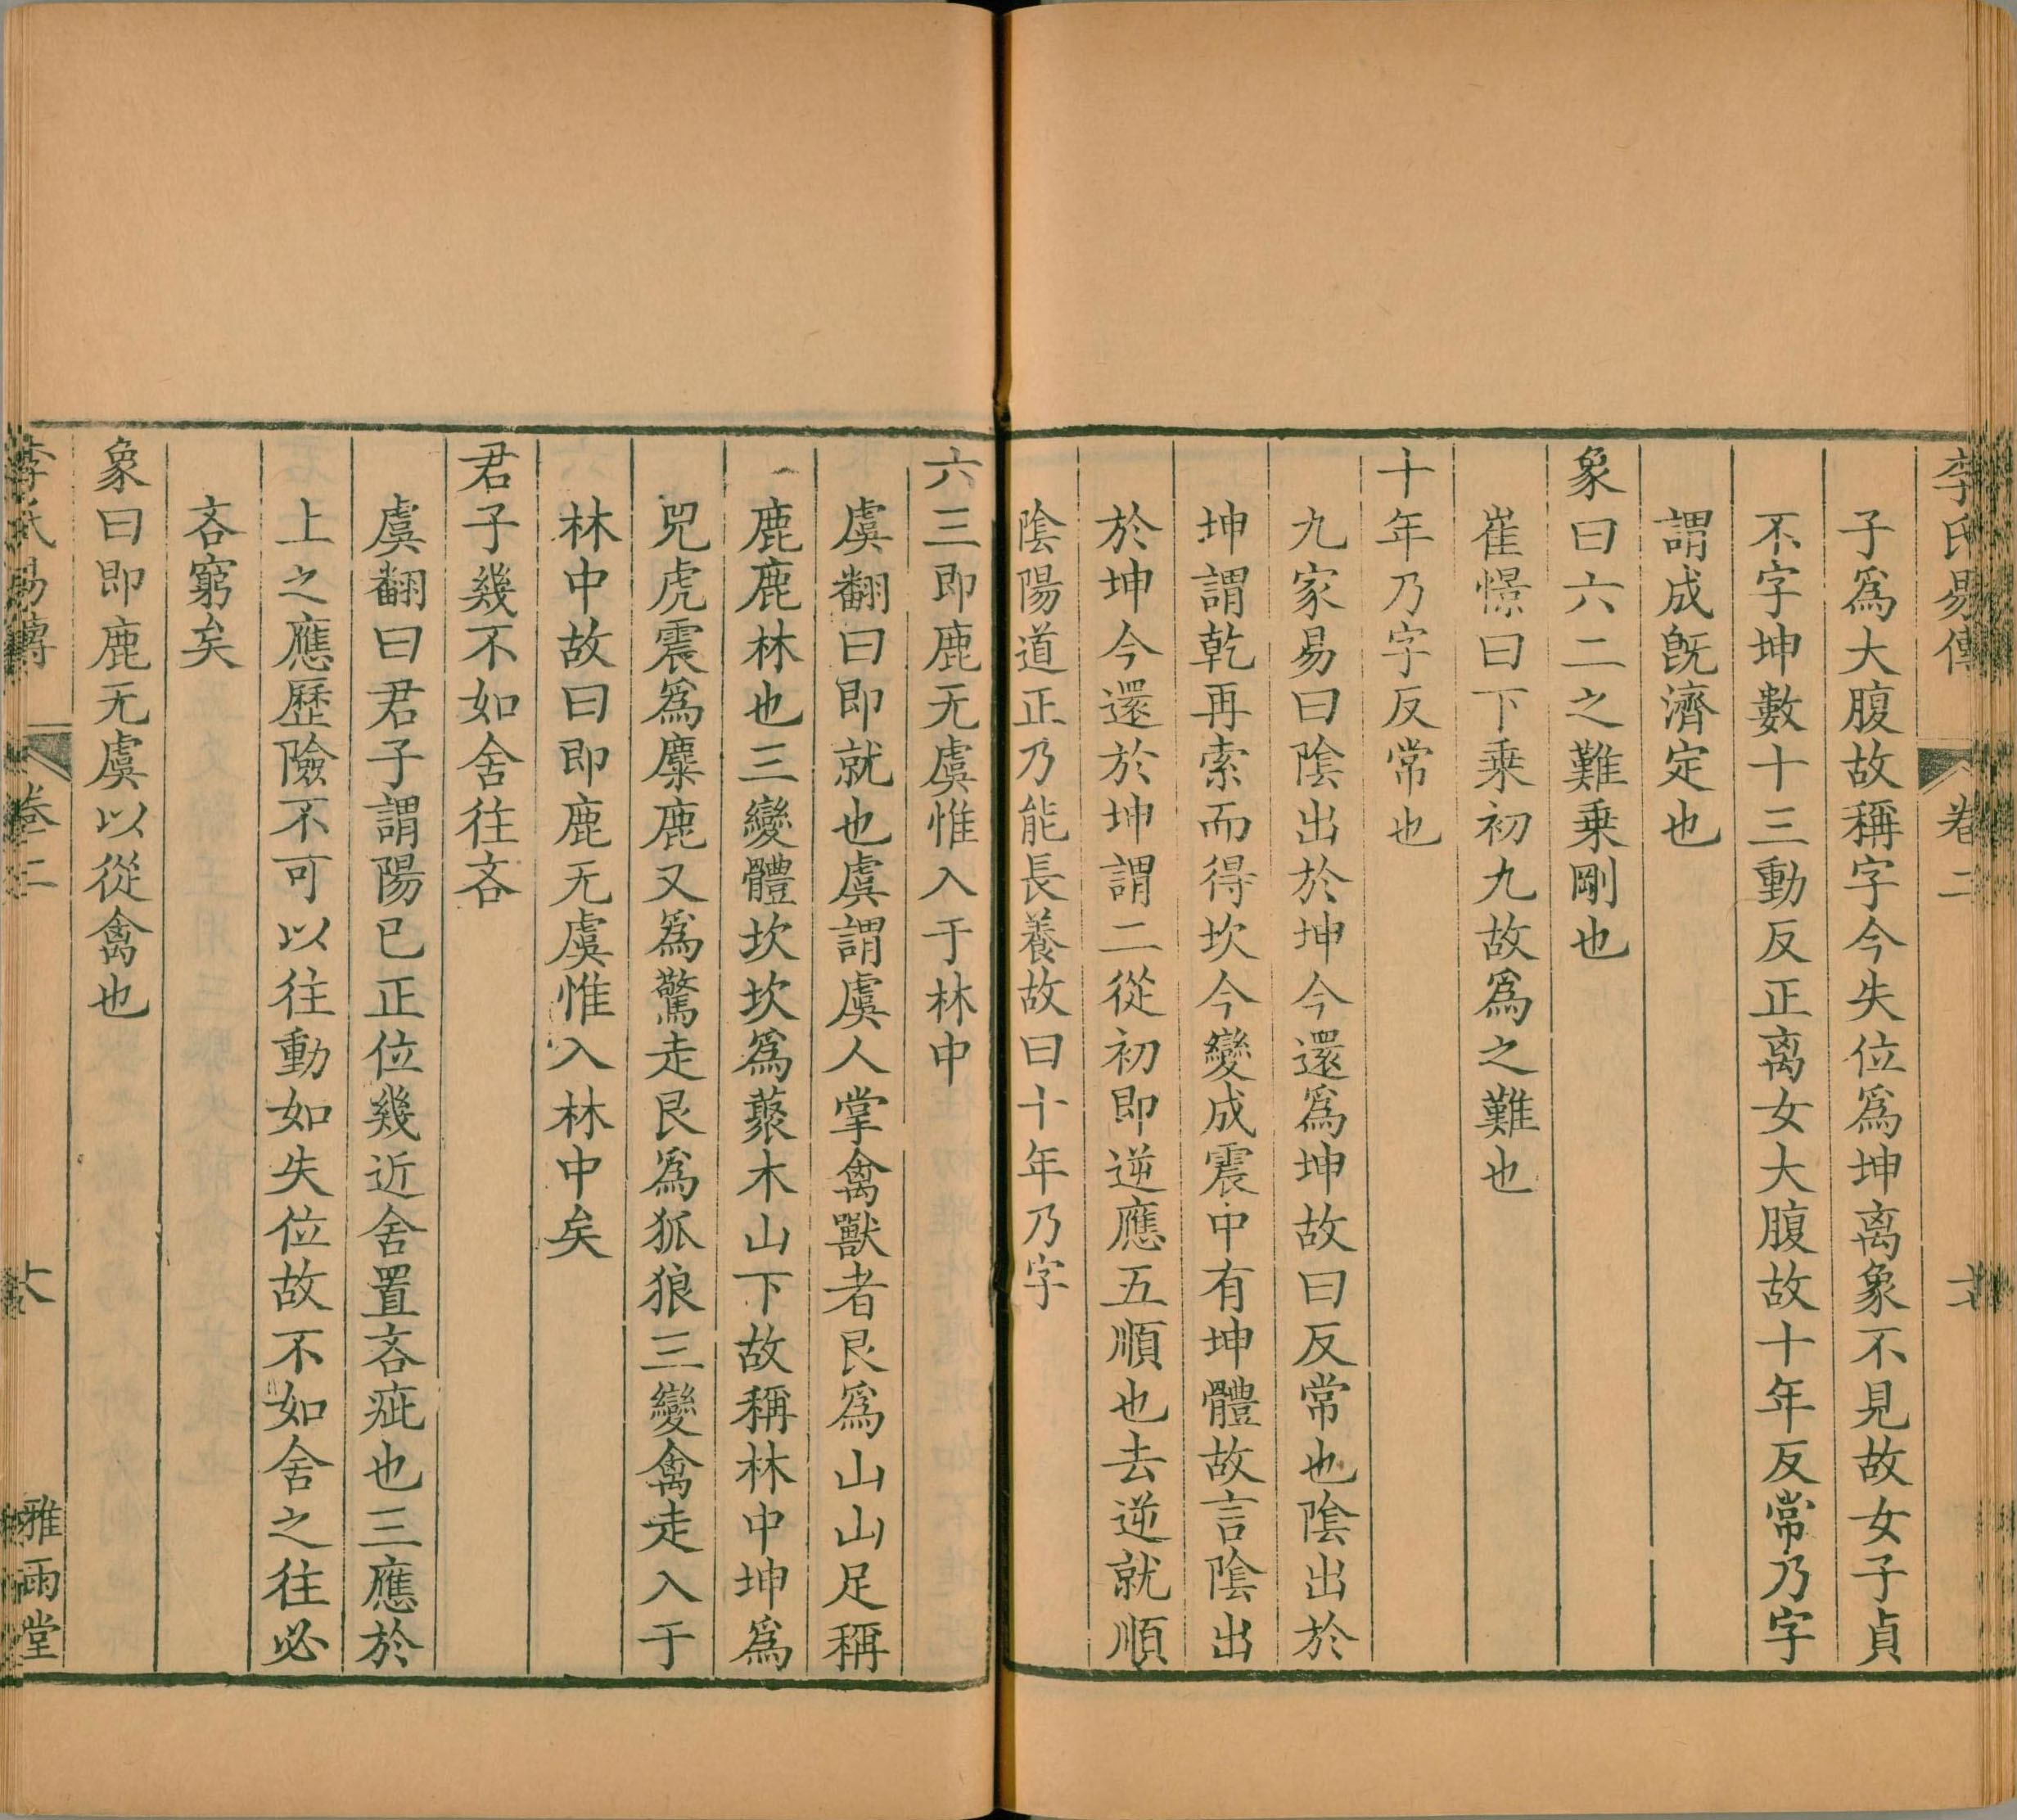 李氏易傳 卷二
子爲大腹故稱字今失位爲坤离象不見故女子貞
不字坤數十三動反正离女大腹故十年反常乃字
謂成旣濟定也
象曰六二之難乗剛也
崔憬曰下乗初九故爲之難也
十年乃字反常也
九家易曰陰出於坤今還爲坤故曰反常也陰出於
坤謂乾再索而得坎今變成震中有坤體故言陰出
於坤今還於坤謂二從初即逆應五順也去逆就順
陰陽道正乃能長養故曰十年乃字
六三即鹿无虞惟入于林中
虞翻曰即就也虞謂虞人掌禽獸者艮爲山山足稱
鹿鹿林也三變體坎坎爲藂木山下故稱林中坤爲
兕虎震爲麋鹿又爲驚走艮爲狐狼三變禽走入于
林中故曰即鹿无虞惟入林中矣
君子幾不如舍往吝
虞翻曰君子謂陽已正位幾近舍置吝疵也三應於
上之應歷險不可以往動如失位故不如舍之往必
吝窮矣
象曰即鹿无虞以從禽也
李氏易傳 卷二 雅雨堂